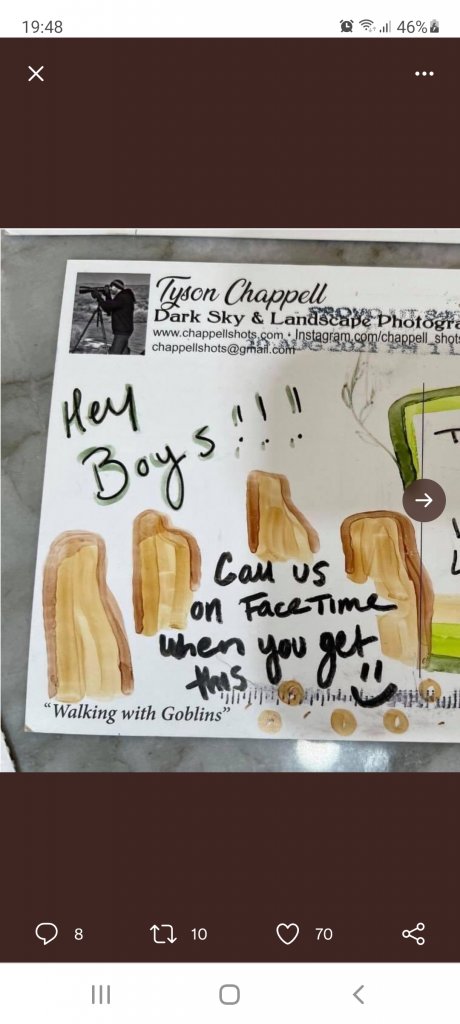 19:48
46%
Tyson Chappell
Dark Sky & Landscape Photogra
www.chappellshots.com • Instagram.com/chappell_shots
chappellshots@gmail.com
PROVO UT
20 AUG 2021 PM 1 L
Hey
Boys!!!
T
L
Call us
on FaceTime
when you get
this
"Walking with Goblins"
8
10
70